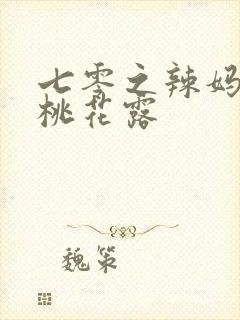 七零之辣妈
桃花露
魏策